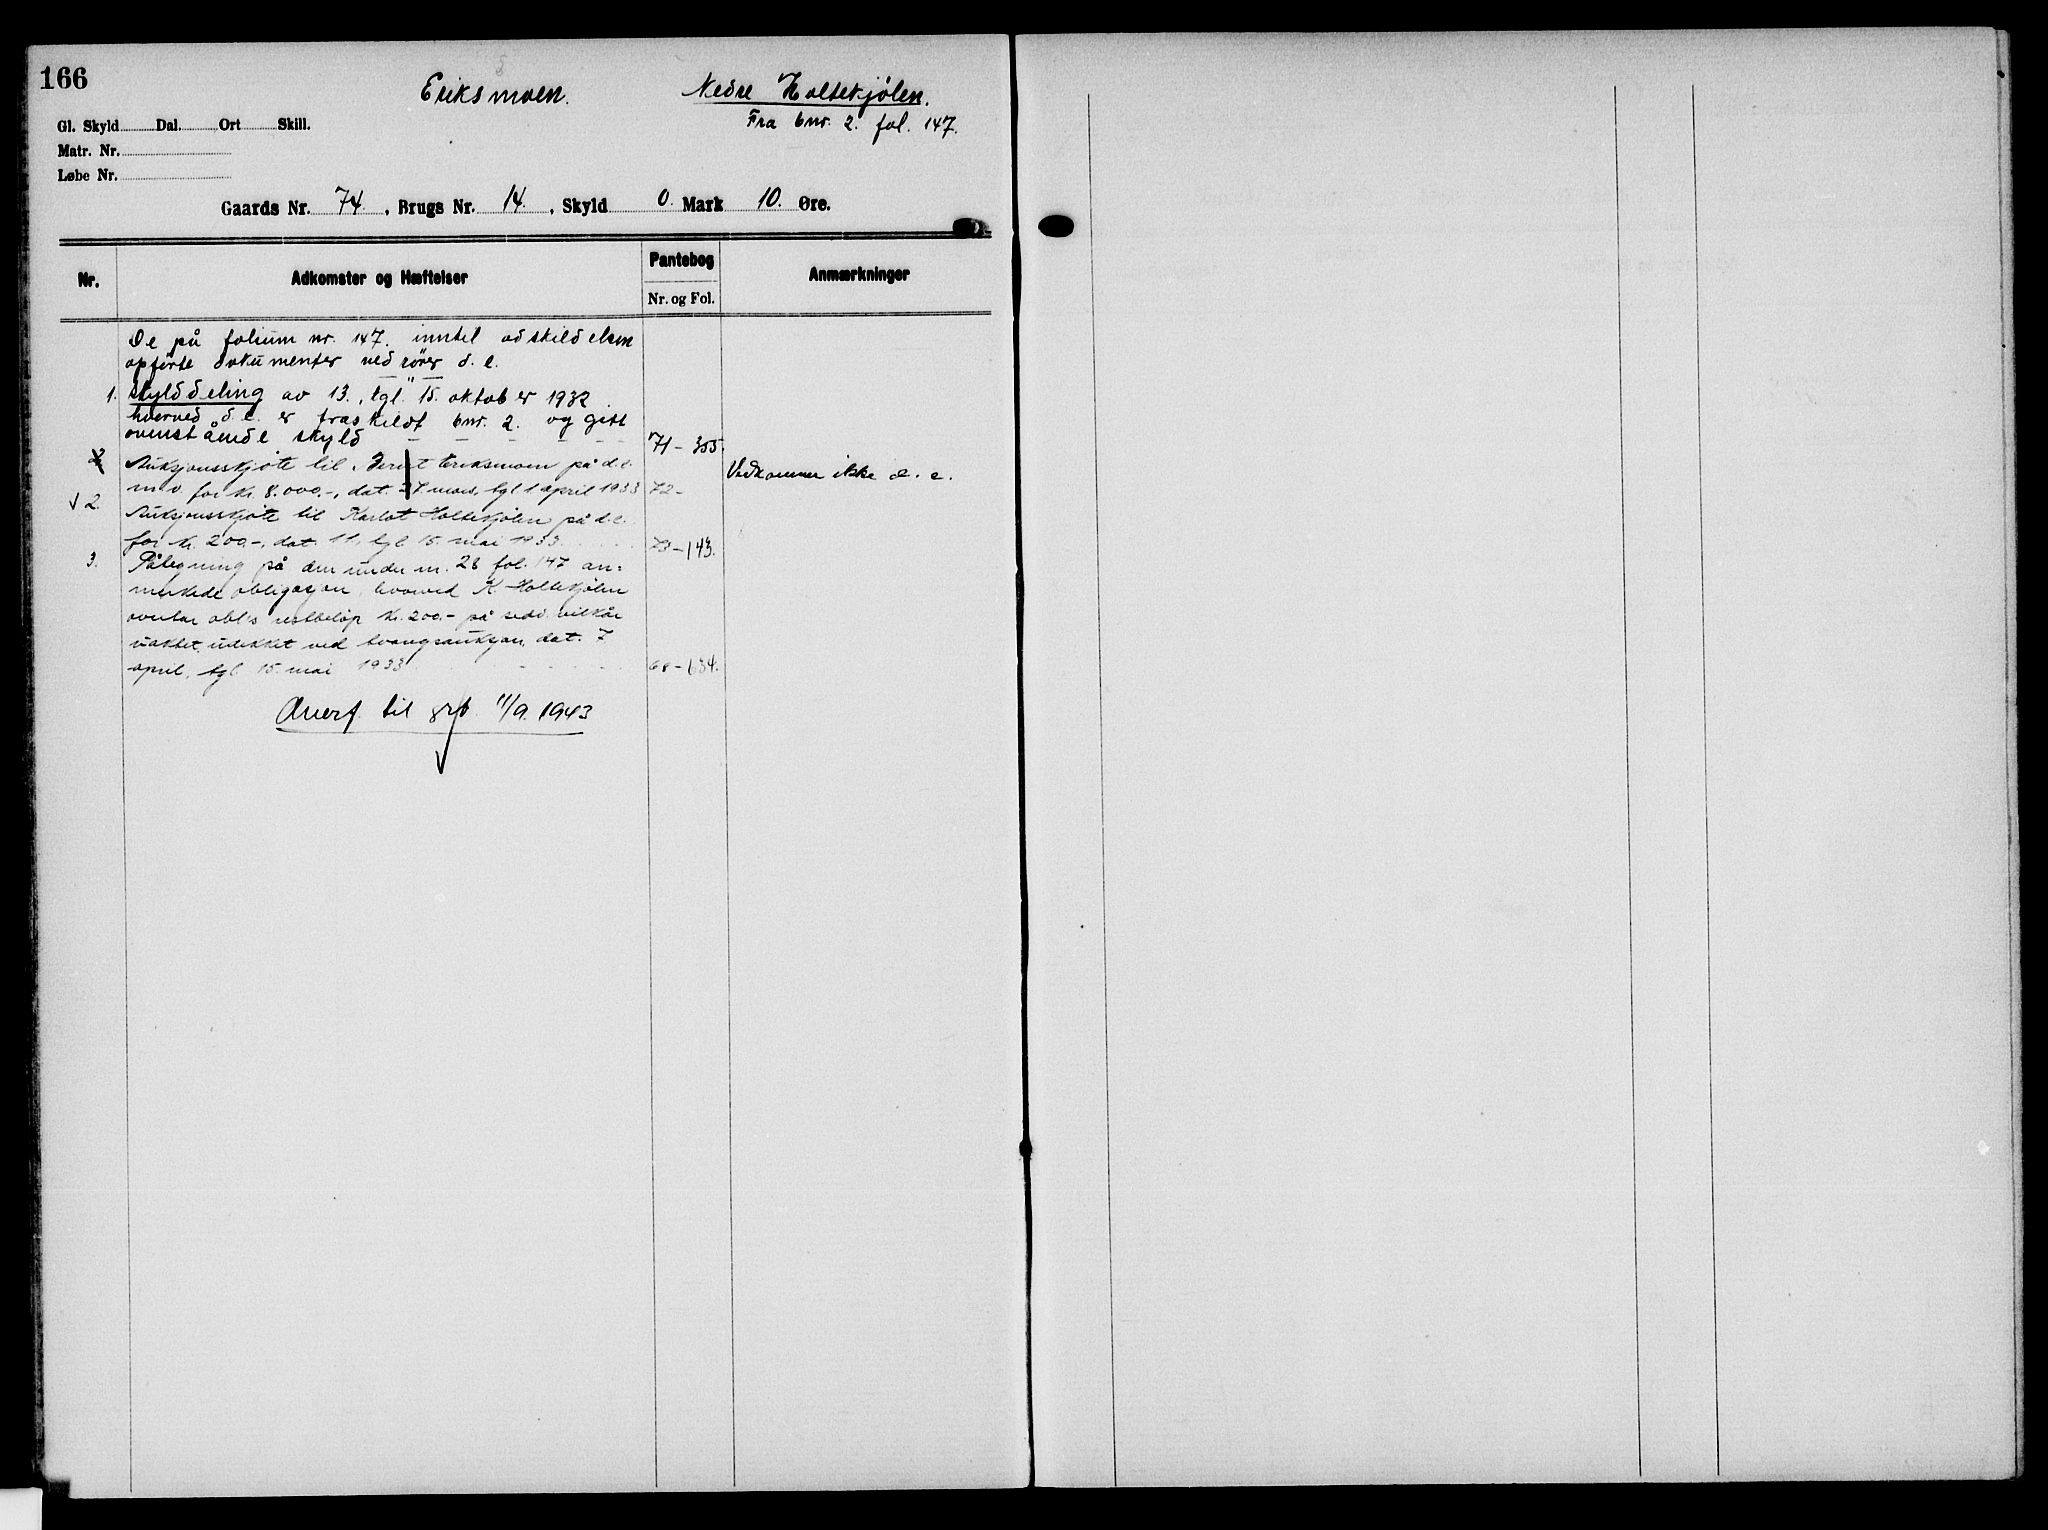 166
Eriksmoen. Nedre Holtekjølen.
Fra bnr. 2. fol. 147.
Gl. Skyld Dal. Ort Skill.
Matr. Nr.
Løbe Nr.
Gaards Nr. 74. , Brugs Nr. 14. , Skyld 0. Mark 10. Øre.
Nr. Adkomster og Hæftelser Pantebog Anmærkninger
Nr. og Fol.
De på folium nr. 147. inntil adskildelsen
opførte dokumenter vedrører d. e.
1. Skylddeling av 13., tgl. 15. oktober 1932
hvorved d. e. er fraskilt bnr. 2. og gitt
ovenstående skyld 71 - 355.
2 Auksjonsskjøte til Eriksmoen på d.e.
m.v. for kr. 8.000.-, dat. 27. mars, tgl 1 april 1933 72- Vedkommer ikke d. e.
2. Auksjonsskjøte til Karlot Holtekjølen på d.e.
for kr. 200.-, dat. 11, tgl 15. mai 1933. 73-143.
3. Påtegning på den under nr. 28 fol. 147 an-
merkede obligasjon, hvorved K. Holtekjølen
overtar obl's restbeløp kr. 200.- på vilkår
ved tvangsauksjon, dat. 7
april, tgl 15. mai 1933. 68-634.
Overf. til grb. 11/9. 1943